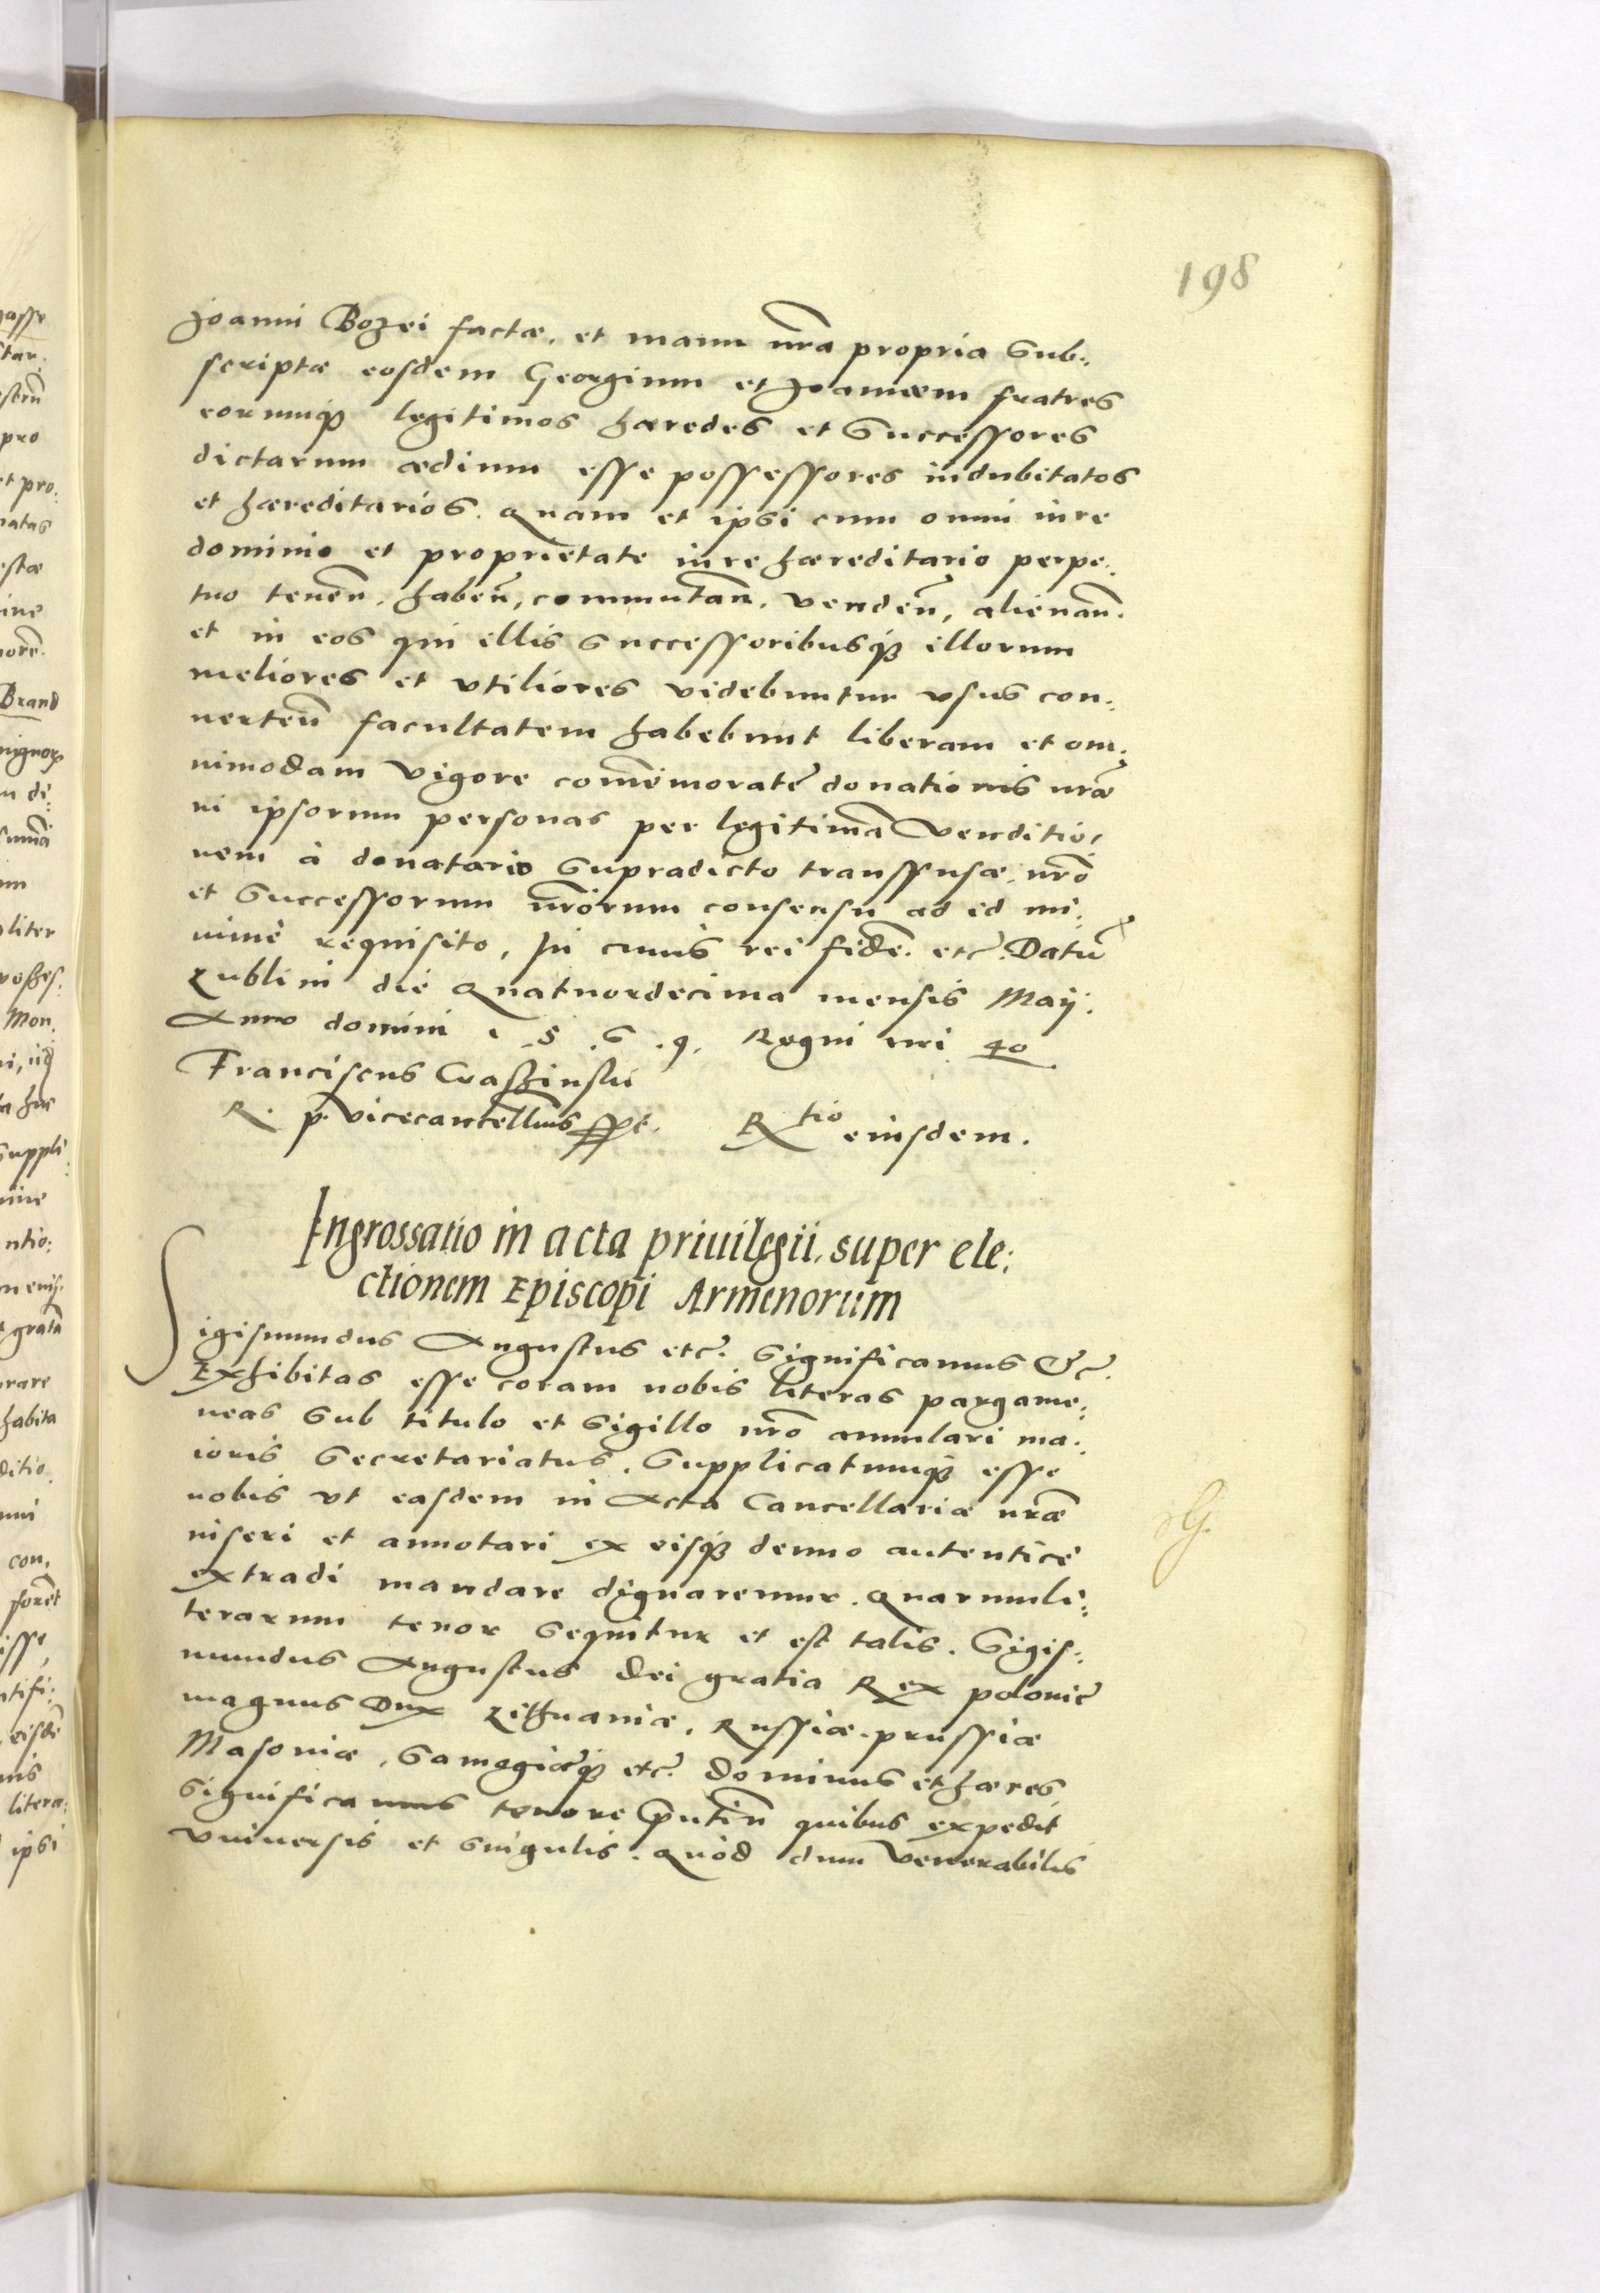 198
Joanni Bozei factæ, et manu nrā propria sub:
scriptæ eosdem Georgium et Joannem fratres
eorumqꝫ legitimos hæredes et successores
dictarum ædium esse possessores indubitatos
et hæreditarios. Quam et ipsi cum omni iure
dominio et proprietate iure hæreditario perpe:
tuo tenen̄, haben̄, commutan̄, venden̄, alienan̄.
et in eos qui illis successoribusqꝫ illorum
meliores et vtiliores videbuntur vsus con:
uerten̄ facultatem habebunt liberam et om:
nimodam vigore com̄emoratę donationis nr̄æ
in ipsorum personas per legitimā venditio:
nem à donatario supradicto transfusæ, nrō
et successorum nrōrum consensu ad id mi:
nimè requisito. In cuius rei fidem̄. etc̄. Datū
Lublini die Quatuordecima mensis Maÿ.
Anno domini 1.5.6.9. Regni nri 40
Franciscus Crasinski
R. p. vicecancellarius sspt. Rtio eiusdem.
Ingrossatio in acta priuilegii, super ele:
ctionem Episcopi Armenorum
Sigismundus Augustus etc̄. Significamus &c̄.
Exhibitas esse coram nobis literas pargame:
neas sub titulo et sigillo nrō annulari ma:
ioris Secretariatus. Supplicatumqꝫ esse
nobis vt easdem in Acta Cancellariæ nrǣ
inseri et annotari ex eisqꝫ denuo autenticè
extradi mandare dignaremur. Quarum li:
terarum tenor sequitur et est talis. Sigis:
mundus Augustus Dei gratia Rex polonię
magnus Dux Lithuaniæ, Russiæ, prussiæ
Masouiæ, Samogitięqꝫ etc̄. dominus et hæres
Significamus tenore p̄ntīn quibus expedit
vniuersis et singulis. Quòd dum Venerabilis